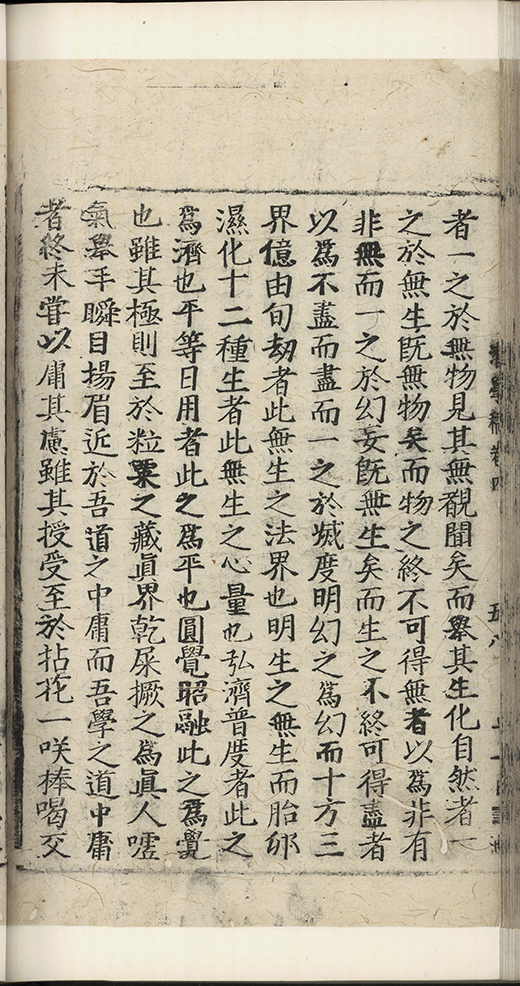 者一之於無物見其無覩聞矣而舉其生化自然者一
之於無生旣無物矣而物之終不可得無者以爲非有
非無而一之於幻妄旣無生矣而生之不終可得盡者
以爲不盡而盡而一之於滅度明幻之爲幻而十方三
界億由旬劫者此無生之法界也明生之無生而胎卵
濕化十二種生者此無生之心量也弘濟普度者此之
爲濟也平等日用者此之爲平也圓覺昭融此之爲覺
也雖其極則至於粒粟之藏眞界乾屎撅之爲眞人噓
氣舉手瞬目揚眉近於吾道之中庸而吾學之道中庸
者終未嘗以庸其慮雖其授受至於拈花一咲棒喝交
卷四
五八